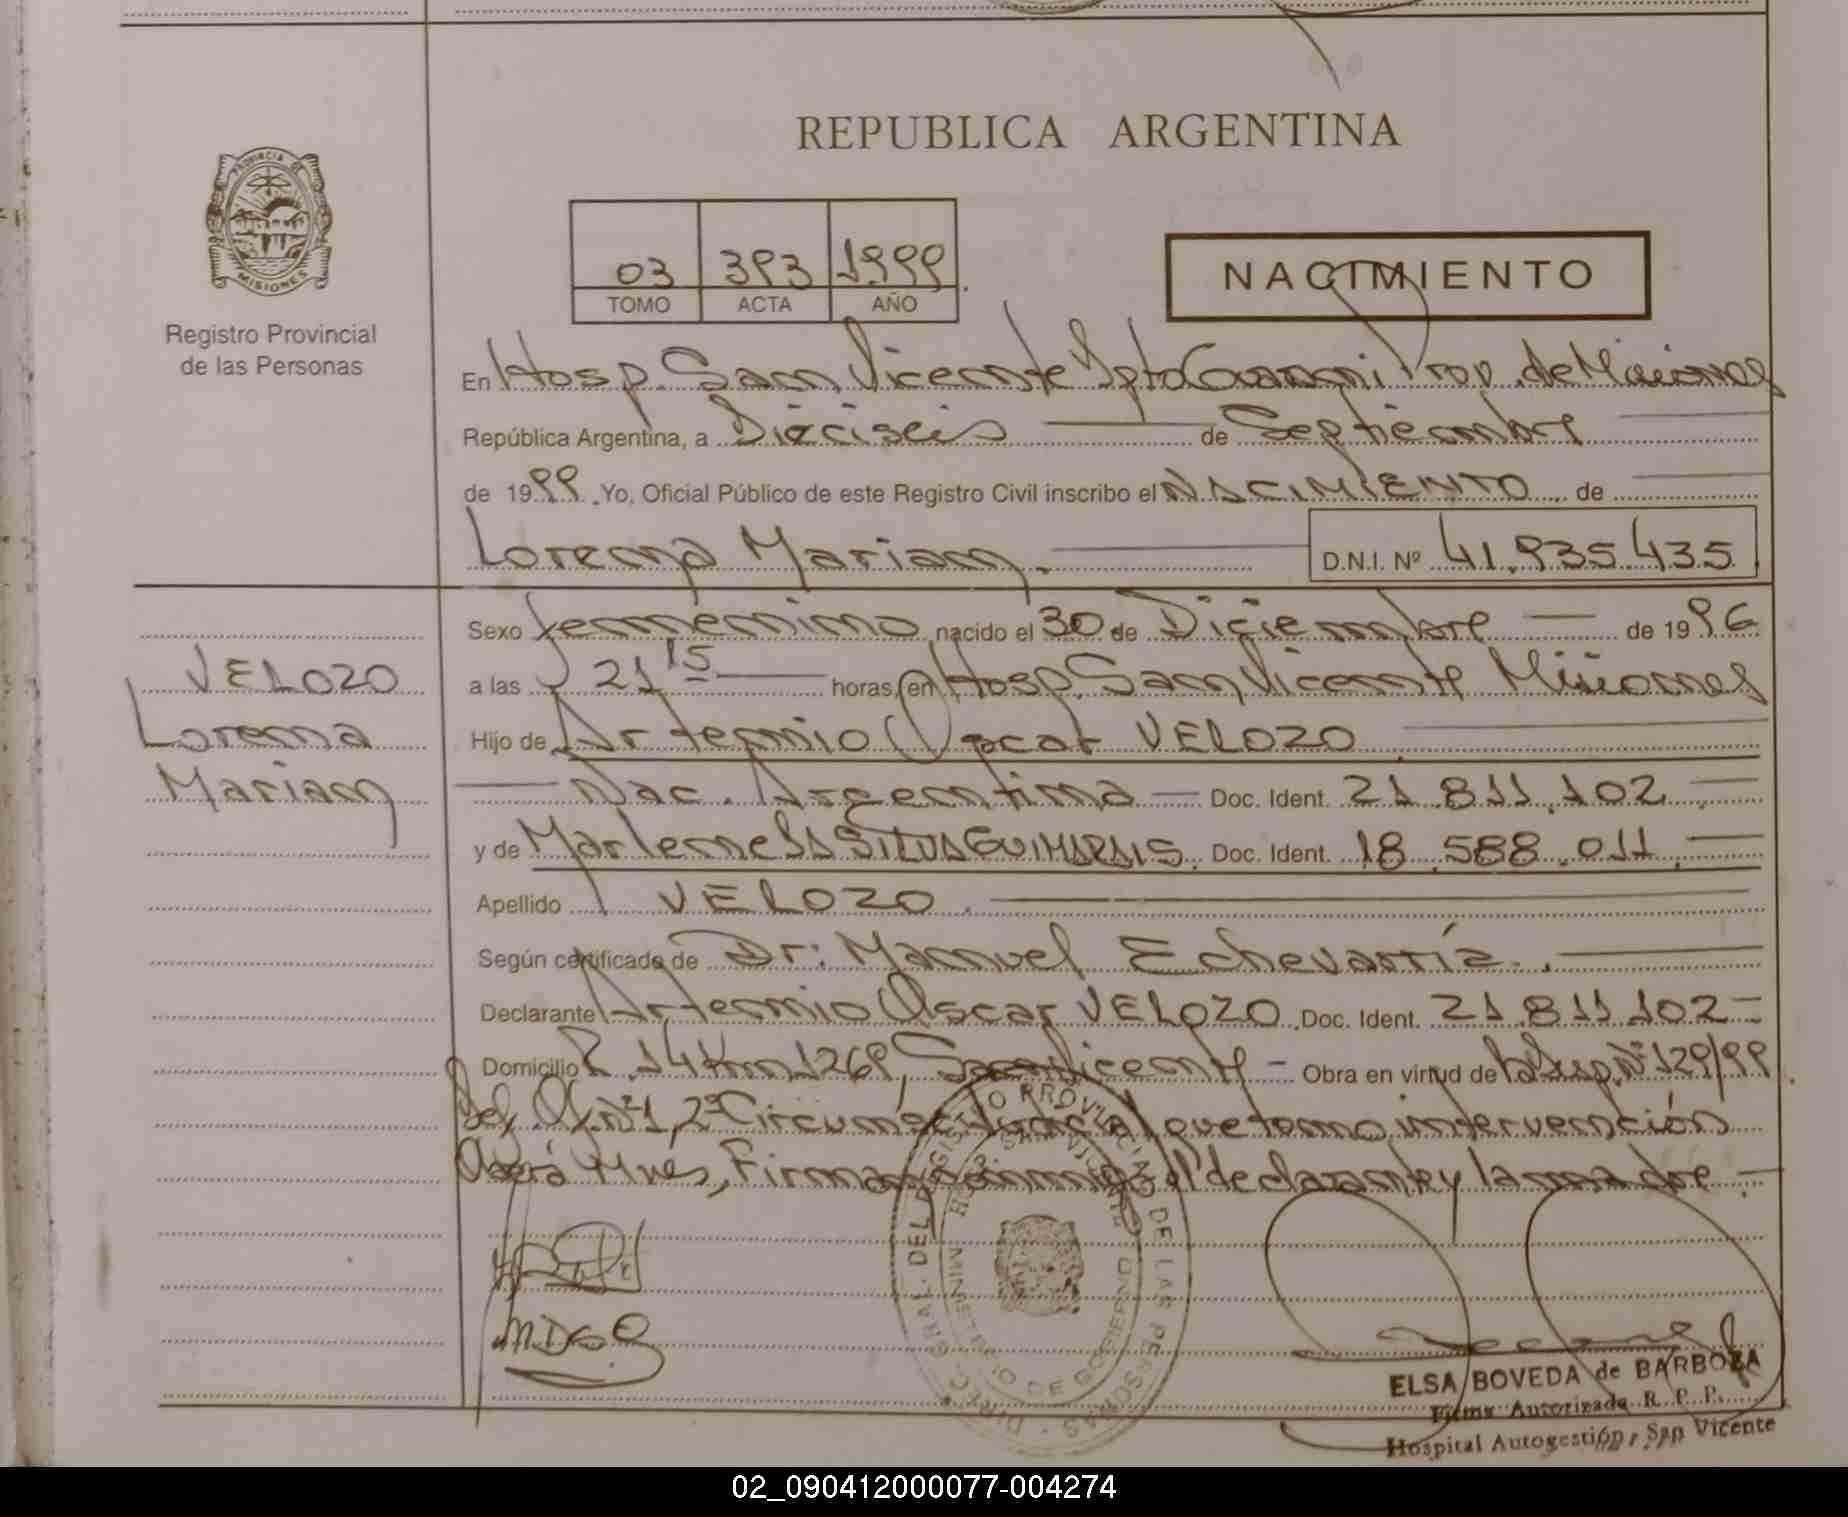 REPUBLICA ARGENTINA
PROVINCIA DE
MISIONES
Registro Provincial
de las Personas
03 393 1999
TOMO ACTA AÑO
NACIMIENTO
En Hosp. San Vicente Dpto Guarani Prov. de Misiones
República Argentina, a Dieciseis de Septiembre
de 1999. Yo, Oficial Público de este Registro Civil inscribo el NACIMIENTO de
Lorena Mariam. D.N.I. Nº 41.935.435
Sexo femenino nacido el 30 de Diciembre de 1996
a las 21 15 horas, en Hosp. San Vicente Misiones
Hijo de Artemio Oscar VELOZO
Nac. Argentina Doc. Ident. 21.811.102
y de Marlene DA SILVA GUIMARAIS. Doc. Ident. 18.588.011
Apellido VELOZO.
Según certificado de Dr: Manuel Echevarría.
Declarante Artemio Oscar VELOZO. Doc. Ident. 21.811.102
Domicilio R. 14 Km 1269, San Vicente - Obra en virtud de la Disp. Nº 129/99
Nº 1, 2º Circunsc. Judicial que tomo intervención
Oberá Mnes, Firman conmigo el declarante y la madre
VELOZO
Lorena
Mariam
DIREC. GRAL. DEL REGISTRO PROVINCIAL DE LAS PERSONAS
HOSP. SAN VICENTE
MINISTERIO DE GOBIERNO
ELSA BOVEDA de BARBOZA
Firma Autorizada R. P. P.
Hospital Autogestión, San Vicente
02_090412000077-004274